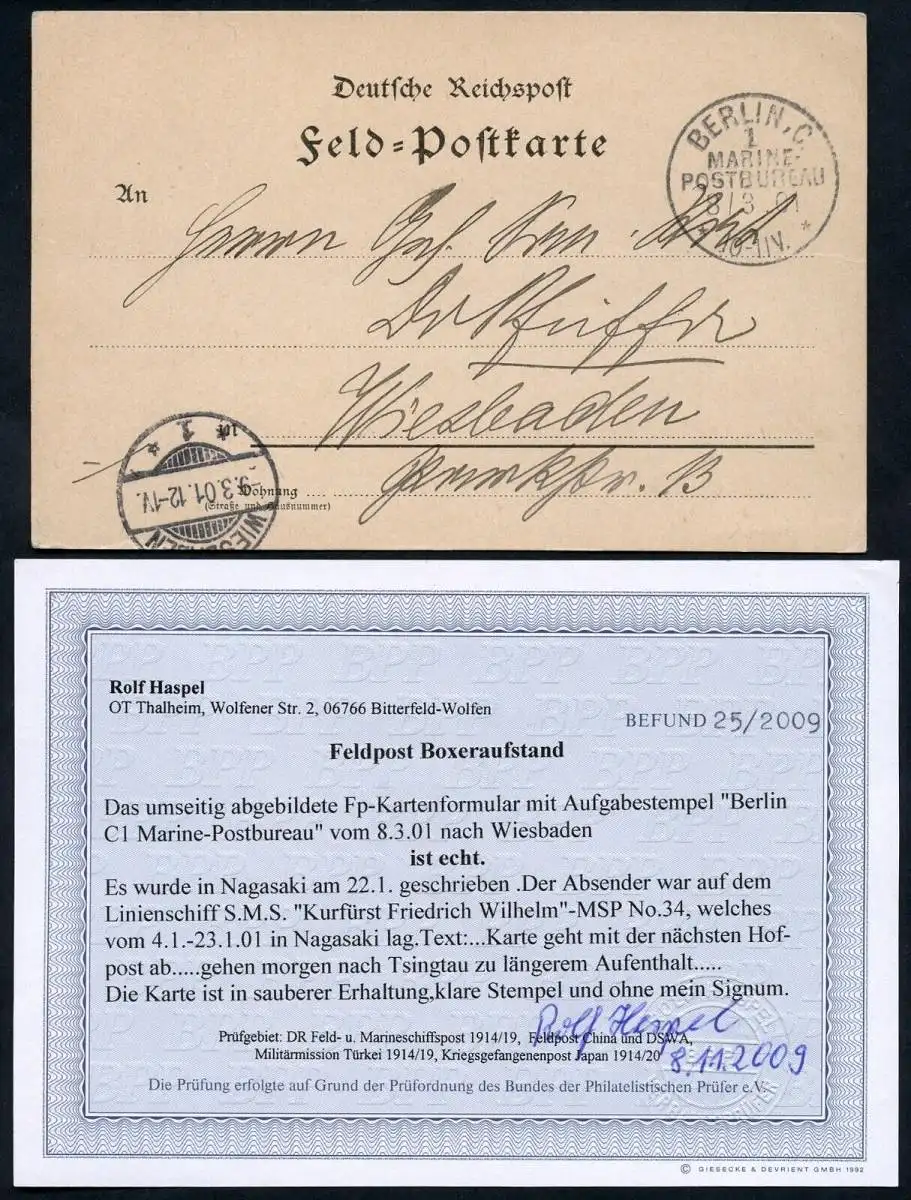 Deutsche Reichspost
Feld=Postkarte
BERLIN, C.
1
MARINE-
POSTBUREAU
8/3 01
* 10-11V. *
An
Herrn Geh. San. Rath
Dr Pfeiffer
Wiesbaden
Parkstr. 13
* 1 *
9.3.01.12-1V.
WIESBADEN
Wohnung
(Straße und Hausnummer)
Rolf Haspel
OT Thalheim, Wolfener Str. 2, 06766 Bitterfeld-Wolfen
BEFUND 25/2009
Feldpost Boxeraufstand
Das umseitig abgebildete Fp-Kartenformular mit Aufgabestempel "Berlin
C1 Marine-Postbureau" vom 8.3.01 nach Wiesbaden
ist echt.
Es wurde in Nagasaki am 22.1. geschrieben .Der Absender war auf dem
Linienschiff S.M.S. "Kurfürst Friedrich Wilhelm"-MSP No.34, welches
vom 4.1.-23.1.01 in Nagasaki lag.Text:...Karte geht mit der nächsten Hof-
post ab.....gehen morgen nach Tsingtau zu längerem Aufenthalt.....
Die Karte ist in sauberer Erhaltung,klare Stempel und ohne mein Signum.
Rolf Haspel
Prüfgebiet: DR Feld- u. Marineschiffspost 1914/19, Feldpost China und DSWA,
Militärmission Türkei 1914/19, Kriegsgefangenenpost Japan 1914/20
8.11.2009
Die Prüfung erfolgte auf Grund der Prüfordnung des Bundes der Philatelistischen Prüfer e.V.
© GIESECKE & DEVRIENT GMBH 1992